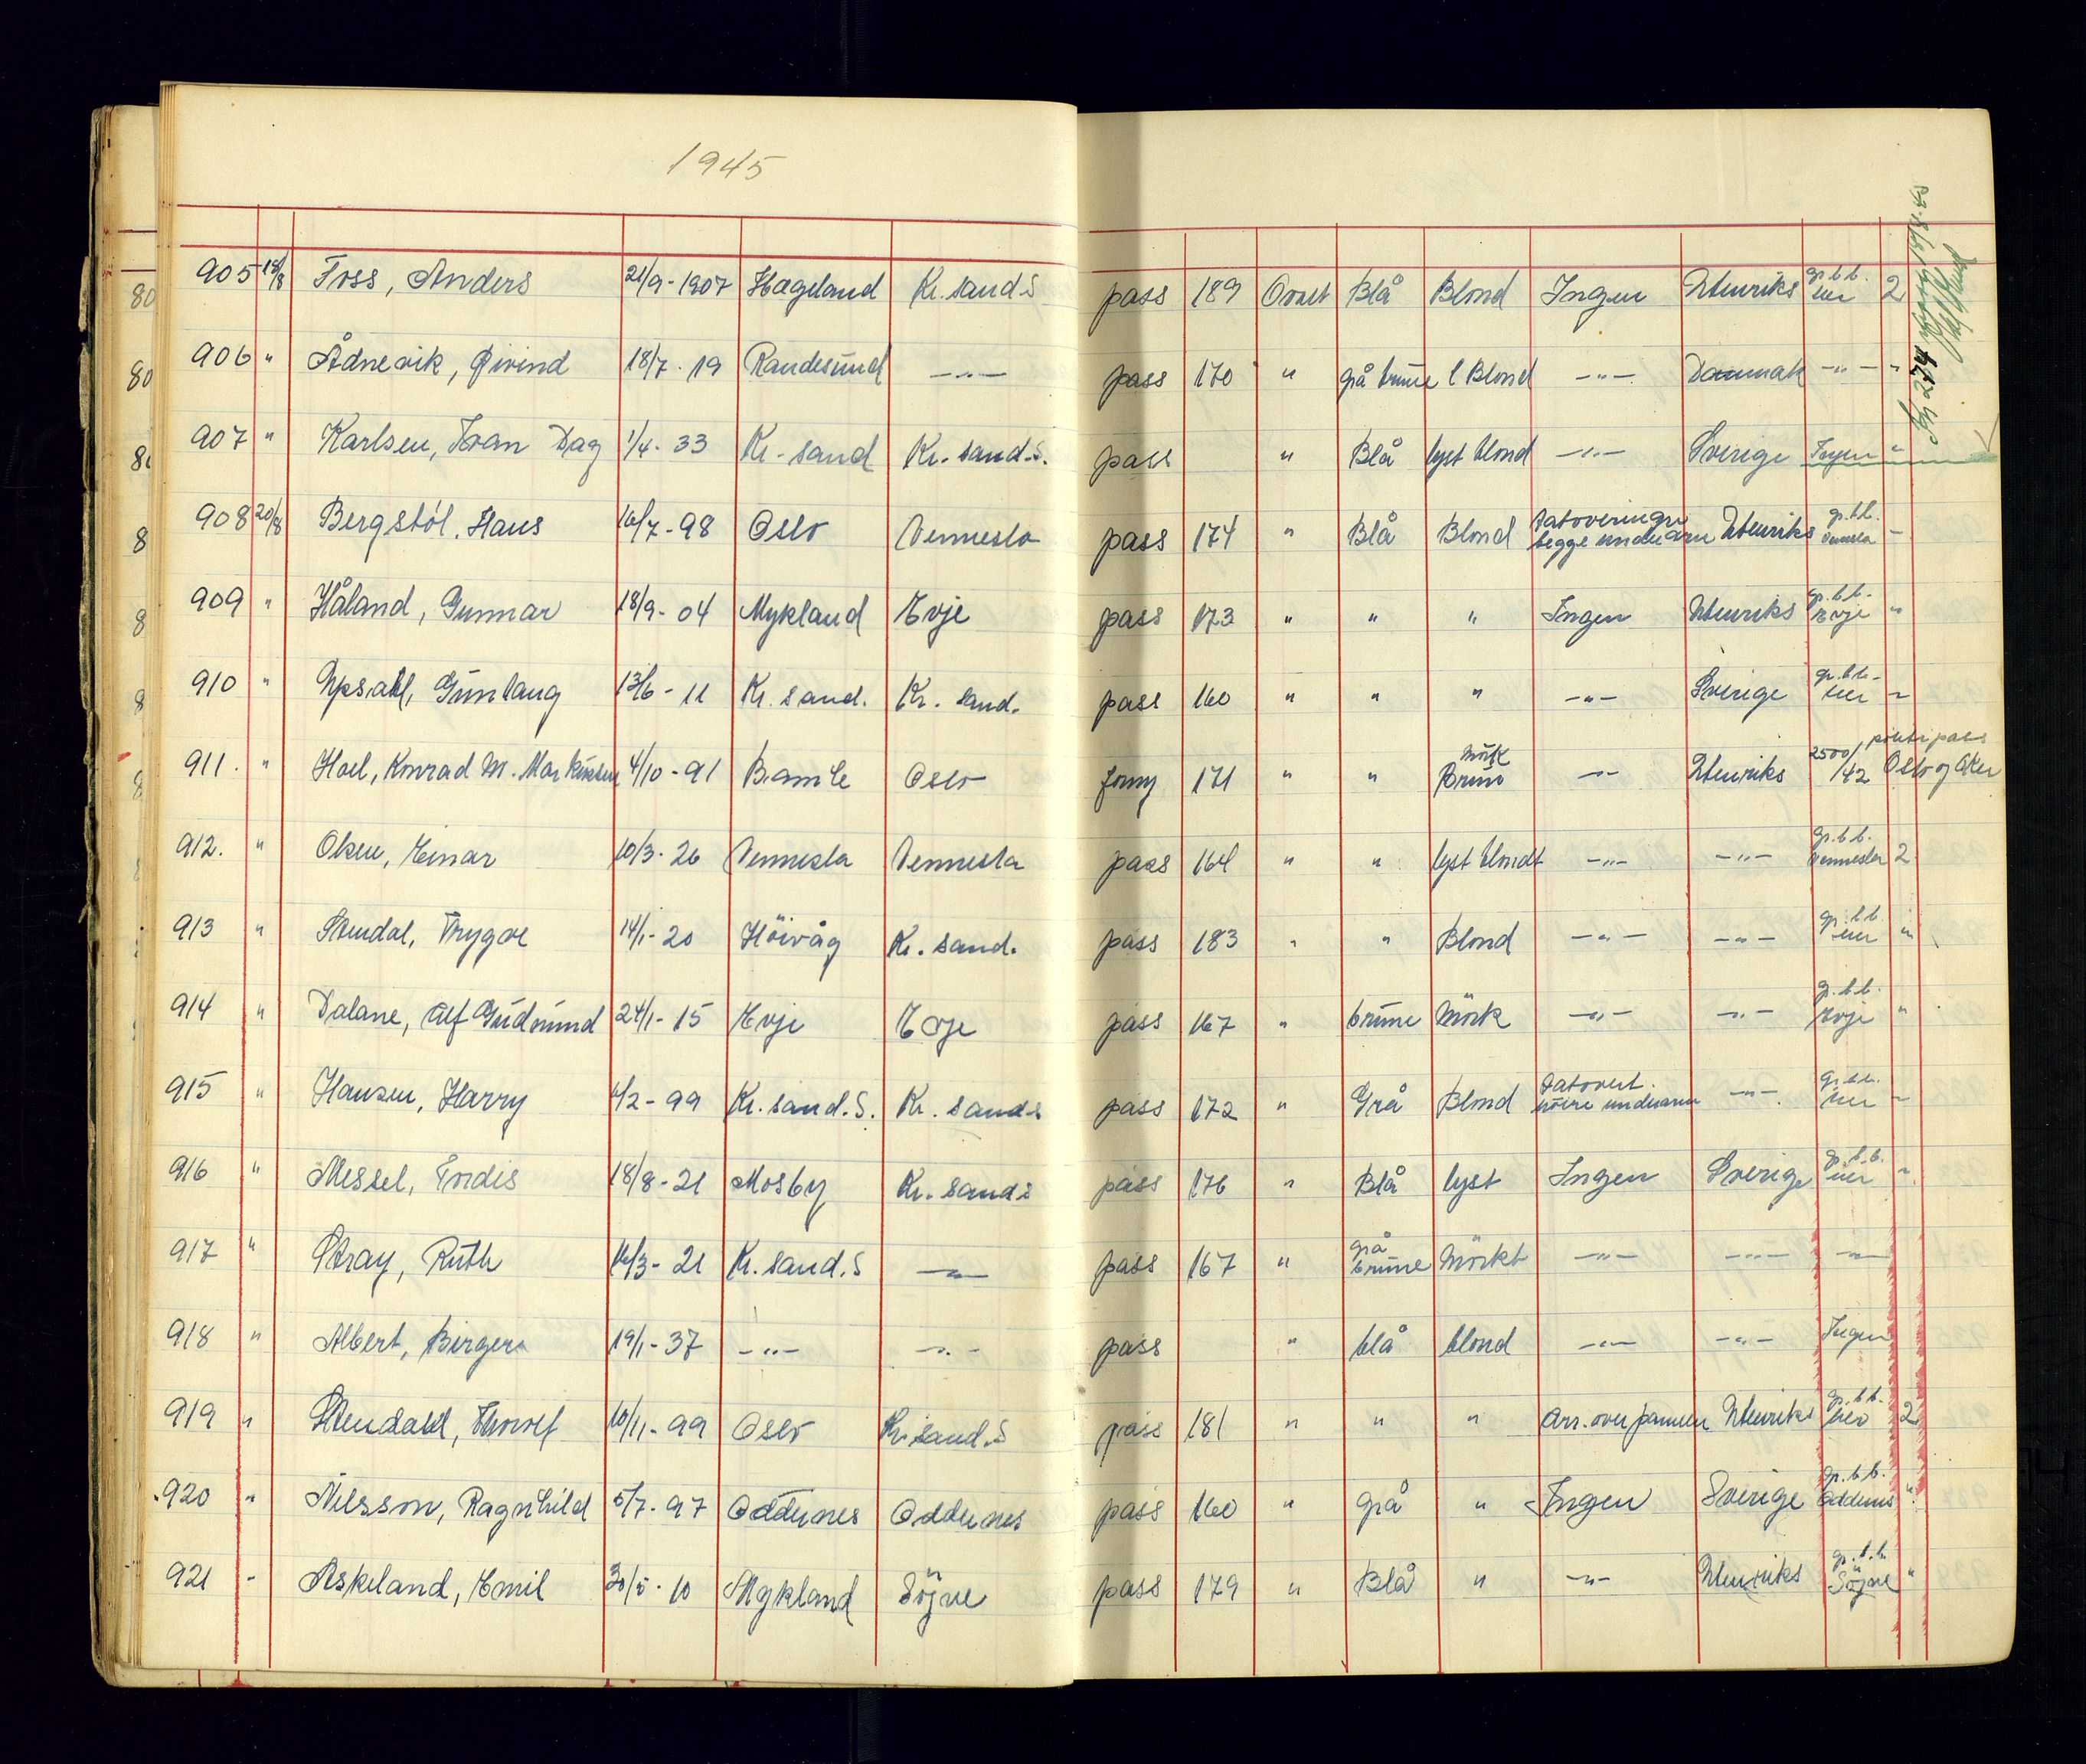 1945
905 18/8 Foss, Anders 21/9-1907 Hægeland Kr. sand S pass 189 Ovalt Blå Blond Ingen Utenriks gr.b.b. her 2
906 " Ådnevik, Øivind 18/7. 19 Randesund —"— pass 170 " grå brune l Blond —"— Danmak —"— "
907 " Karlsen, Ivan Dag 1/4. 33 Kr. sand Kr. sand.S. pass " Blå lyst blond —"— Sverige Ingen "
908 20/8 Bergstöl, Hans 16/7-98 Oslo Vennesla pass 174 " Blå Blond tatoveringer begge underarm Utenriks gr.b.b. Vennesla "
909 " Håland, Gunnar 18/9-04 Mykland Evje pass 173 " " " Ingen Utenriks gr.b.b. Evje "
910 " Ypsahl, Gunlaug 13/6-11 Kr. sand. Kr. sand. pass 160 " " " —"— Sverige gr.b.b. her "
911. " Hoel, Konrad M. Markussen 4/10-91 Bamle Oslo 171 " " Mörk Brun —"— Utenriks 2500/42 politipass Oslo og Aker
912. " Olsen, Einar 10/3-26 Vennesla Vennesla pass 164 " " lyst blondt —"— —"— gr.b.b. Vennesla 2
913 " Stendal, Trygve 14/1-20 Höivåg Kr. sand. pass 183 " " Blond —"— —"— gr.b.b. her "
914 " Dalane, Alf Gudmund 24/1-15 Evje Evje pass 167 " brune Mörk —"— —"— gr.b.b. Evje "
915 " Hansen, Harry /2-99 Kr. sand.S. Kr. sand S pass 172 " Grå Blond tatovert höire underarm —"— gr.b.b. her "
916 " Messel, Tordis 18/8-21 Mosby Kr. sand S pass 176 " Blå lyst Ingen Sverige gr.b.b. her "
917 " Stray, Ruth 16/3-21 Kr. sand.S —"— pass 167 " grå brune Mörkt —"— —"— —"—
918 " Albert, Birger 19/1-37 —"— —"— pass " blå blond —"— —"— Ingen
919 " Stendahl, Thorolf 10/11-99 Oslo Kr. sand.S pass 181 " " " Arr. over pannen Utenriks gr.b.b. her 2
920 " Nilsson, Ragnhild 5/7-97 Oddernes Oddernes pass 160 " grå " Ingen Sverige gr.b.b. Oddernes "
921 " Askeland, Emil 30/5-10 Mykland Sögne pass 179 " Blå " —"— Utenriks gr.b.b. Sögne "